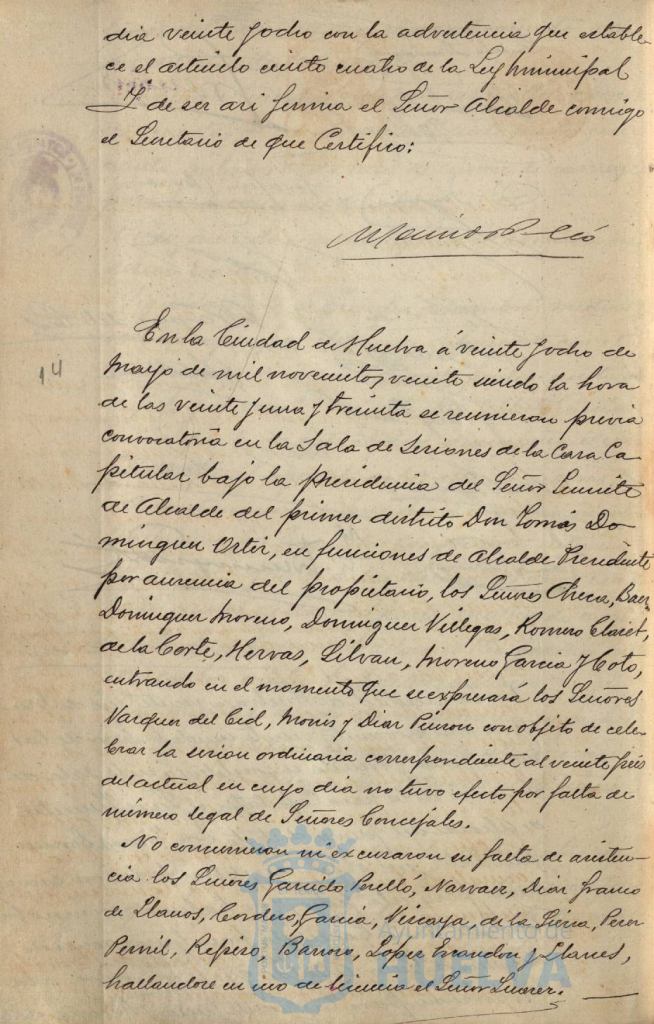 dia veinte y ocho con la advertencia que estable-
ce el articulo ciento cuatro de la Ley Municipal
Y de ser asi firma el Señor Alcalde conmigo
el Secretario de que Certifico:
14
En la Ciudad de Huelva á veinte y ocho de
Mayo de mil novecientos veinte siendo la hora
de las veinte y una y treinta se reunieron previa
convocatoria en la Sala de Sesiones de la Casa Ca-
pitular bajo la presidencia del Señor Teniente
de Alcalde del primer distrito Don Tomás Do-
minguez Ortiz, en funciones de Alcalde Presidente
por ausencia del propietario, los Señores Checa, Baez,
Dominguez Moreno, Dominguez Villegas, Romero Claret,
de la Corte, Hervas, Silvan, Moreno Garcia y Coto,
entrando en el momento que se expresará los Señores
Vazquez del Cid, Monis y Diaz Pinzon con objeto de cele-
brar la sesion ordinaria correspondiente al veinte y seis
del actual en cuyo dia no tuvo efecto por falta de
número legal de Señores Concejales.
No concurrieron ni excusaron su falta de asisten-
cia los Señores Garrido Perelló, Narvaez, Diaz Franco
de Llanos, Cordero, Garcia, Vizcaya, de la Sierra, Perez
Pernil, Repiso, Barroso, Lopez Escandon y Llanes,
hallandose en uso de licencia el Señor Suarez.
Ayuntamiento de
HUELVA